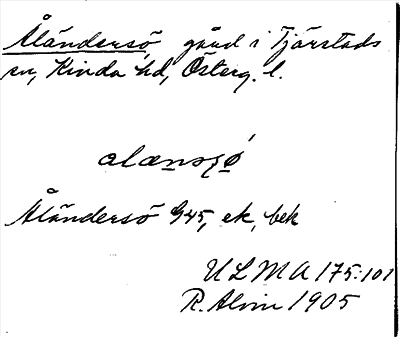 Åländersö, gård i Tjärstads
sn, Kinda hd, Österg. l.
alænsʃø
Åländersö G45, ek, bek
ULMA 175:101
R. Alvin 1905